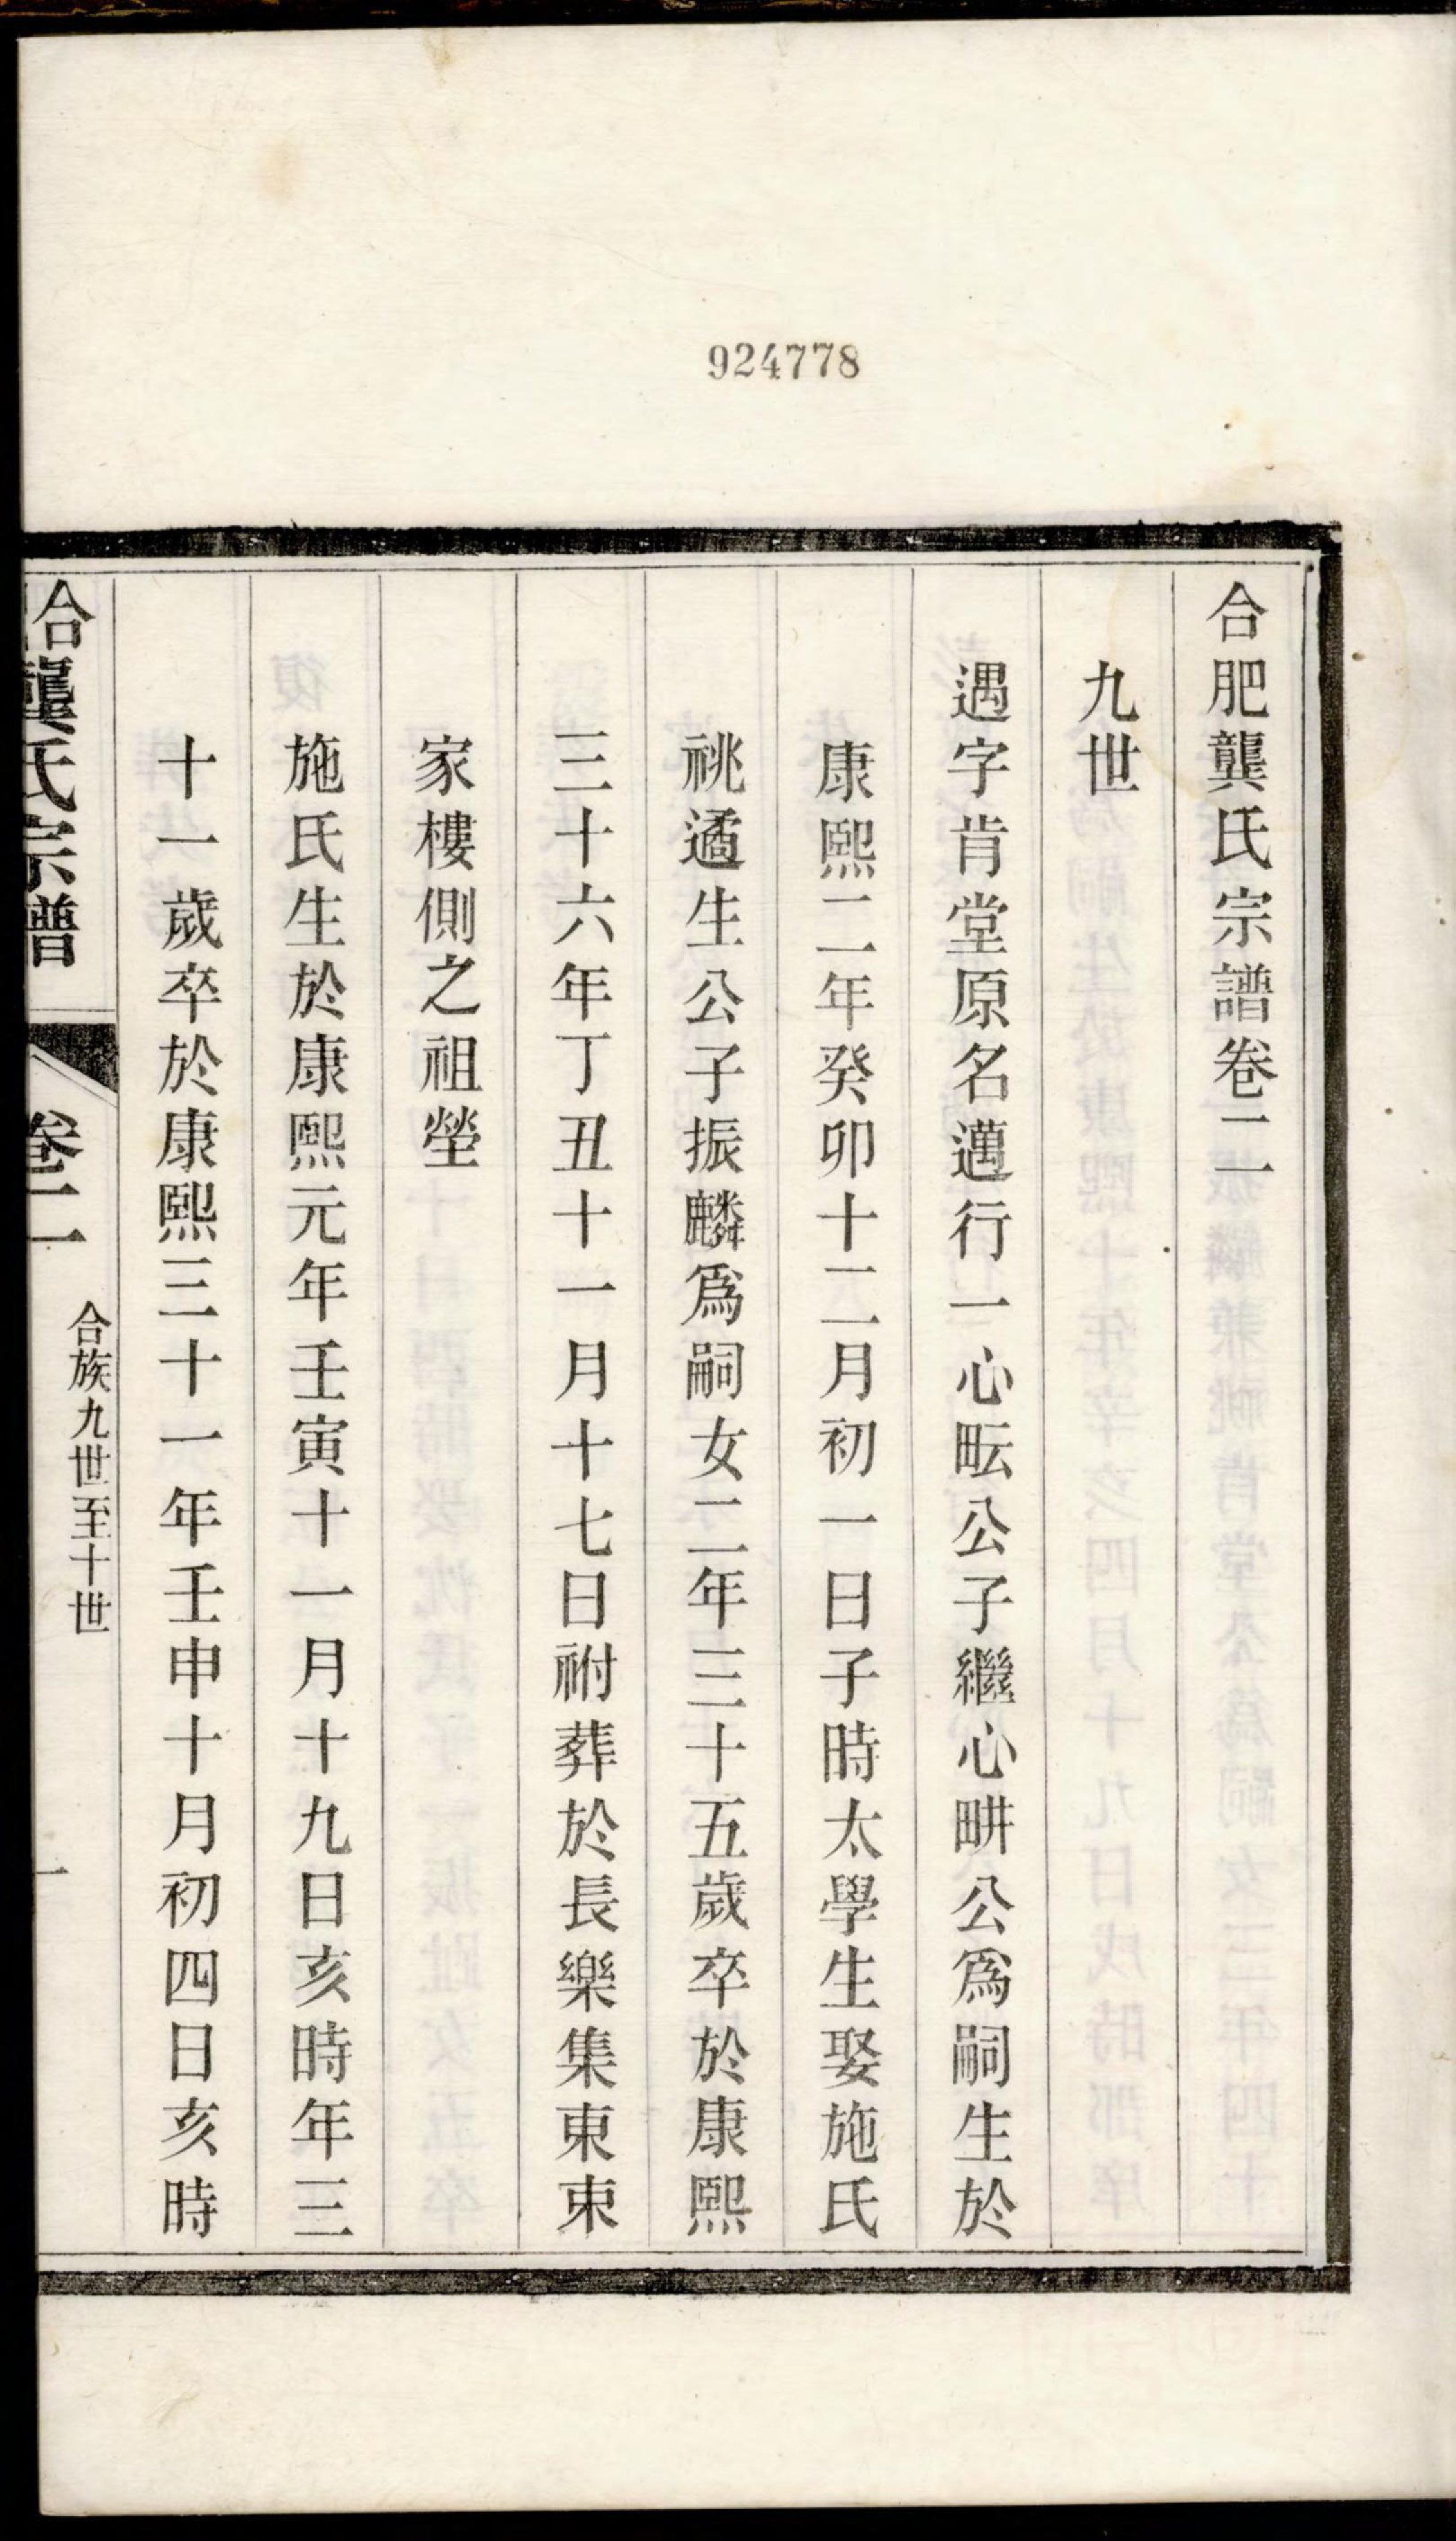 924778
合肥龔氏宗譜卷二
九世
遇字肯堂原名邁行一心畇公子繼心畊公爲嗣生於
康熙二年癸卯十二月初一日子時太學生娶施氏
祧遹生公子振麟爲嗣女二年三十五歲卒於康熙
三十六年丁丑十一月十七日祔葬於長樂集東東
家樓側之祖塋
施氏生於康熙元年壬寅十一月十九日亥時年三
十一歲卒於康熙三十一年壬申十月初四日亥時
合龔氏宗譜
卷二
合族九世至十世
一